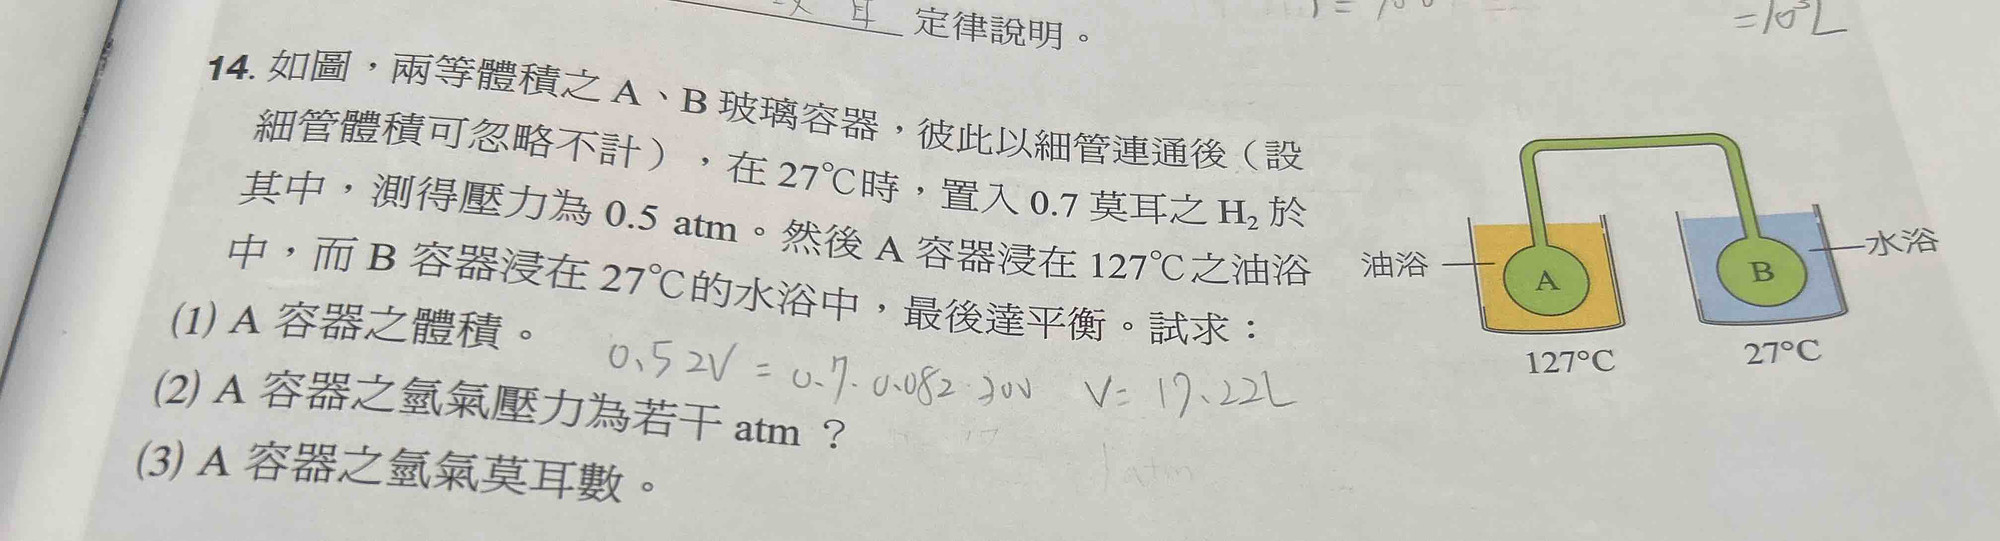 定律說明。
=10³L
14. 如圖，兩等體積之 A、B 玻璃容器，彼此以細管連通後（設
細管體積可忽略不計），在 27℃時，置入 0.7 莫耳之 H₂ 於
其中，測得壓力為 0.5 atm。然後 A 容器浸在 127℃之油浴
中，而 B 容器浸在 27℃的水浴中，最後達平衡。試求：
(1) A 容器之體積。
0.5 2V = 0.7·0.082·300 V= 17.22L
(2) A 容器之氫氣壓力為若干 atm ？
(3) A 容器之氫氣莫耳數。
油浴
A
B
水浴
127°C
27°C